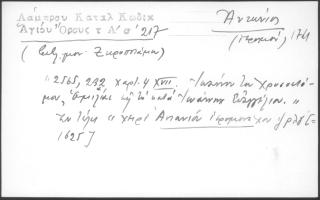 Λάμπρου Καταλ Κωδικ
Ἁγίου Ὄρους τ Α'σ 217
Ἀντώνιος
(Ἱερομον) 1761
(Ἐκ. μον. Ξηροποτάμου)
"2565, 232 χαρτ. 4 XVII. Ἰωάννου του Χρυσοστό-
μου, Ὁμιλίαι εἰς τὸ κατὰ Ἰωάννην Εὐαγγέλιον."
Ἐν τέλει "χειρὶ Ἀντωνίου ἱερομονάχου
1625]